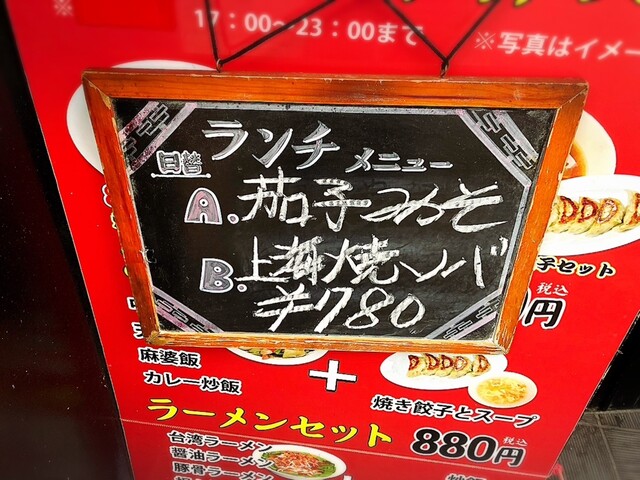 17:00〜23:00まで
※写真はイメー
日替 ランチ メニュー
A. 茄子みそ
B. 上海焼ソバ
¥780
子セット
税込
0円
麻婆飯
カレー炒飯
+
焼き餃子とスープ
ラーメンセット 880円 税込
台湾ラーメン
醤油ラーメン
豚骨ラーメン